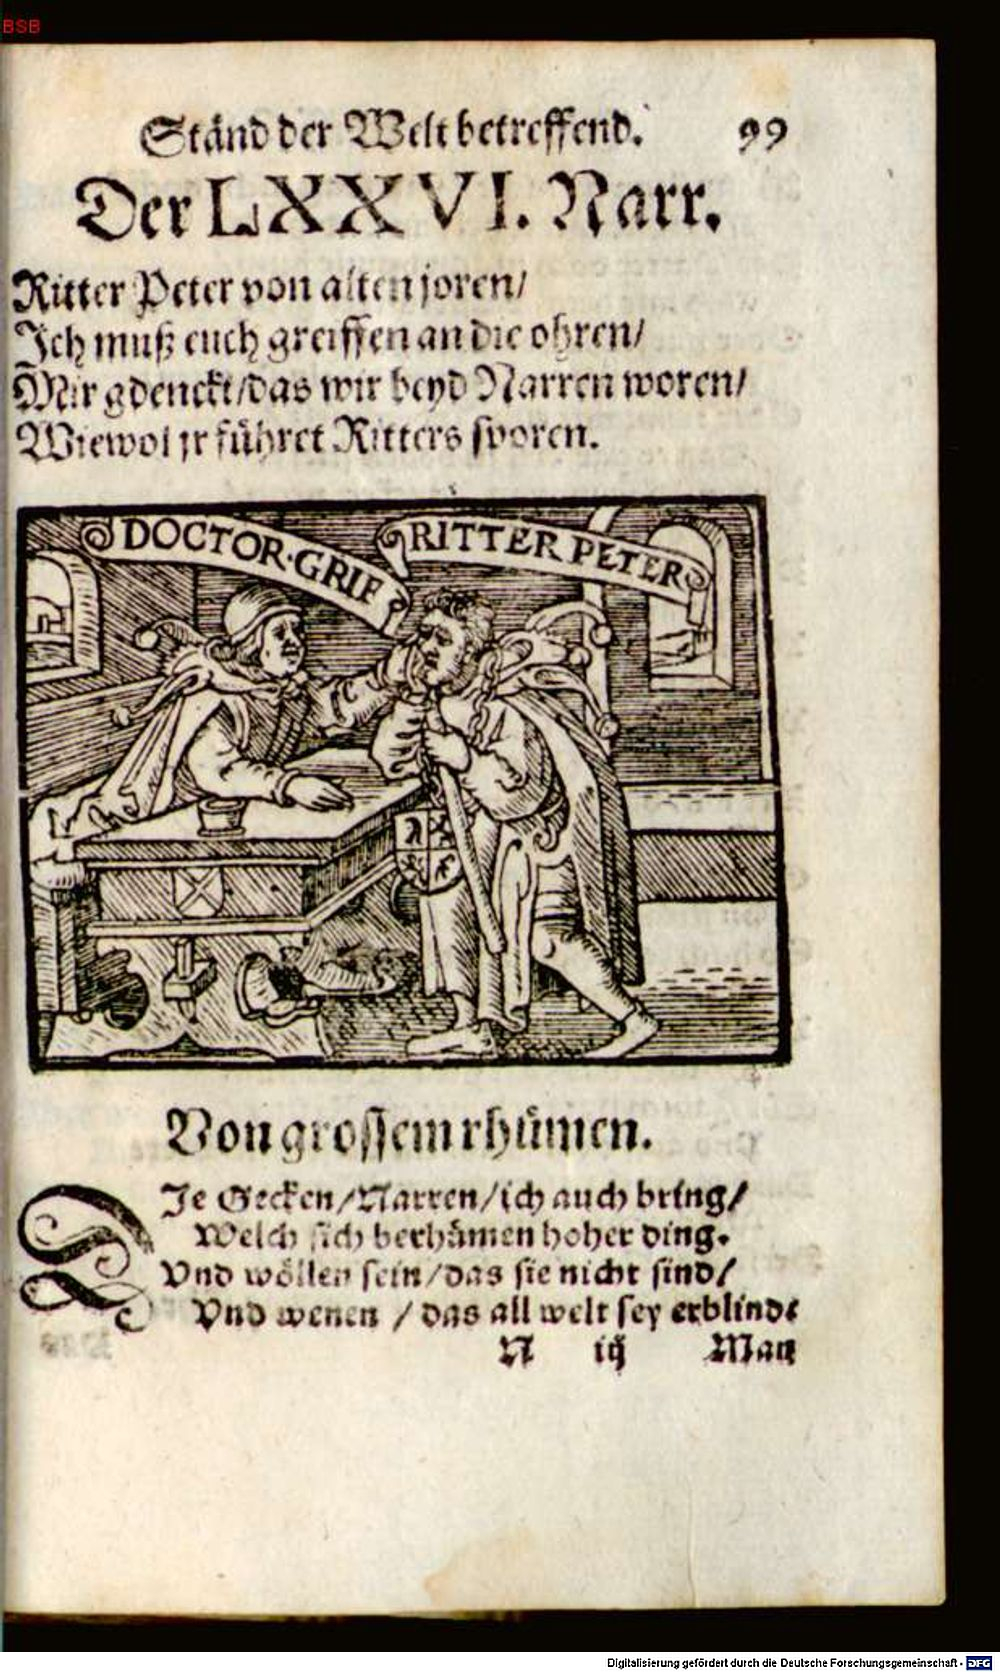 BSB
Ständ der Welt betreffend. 99
Der LXXVI. Narr.
Ritter Peter von alten joren/
Ich muß euch greiffen an die ohren/
Mir gdenckt/das wir beyd Narren woren/
Wiewol jr führet Ritters sporen.
DOCTOR·GRIF RITTER PETER
Von grossem rhůmen.
DJe Gecken/Narren/ich auch bring/
Welch sich berhůmen hoher ding.
Vnd wöllen sein/das sie nicht sind/
Vnd wenen / das all welt sey erblindt
N iij Man
Digitalisierung gefördert durch die Deutsche Forschungsgemeinschaft - DFG